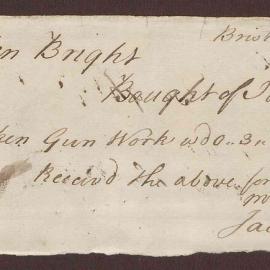 Brist
en Bright
Bought of J
ken Gun Work
Receivd the above for
Ja